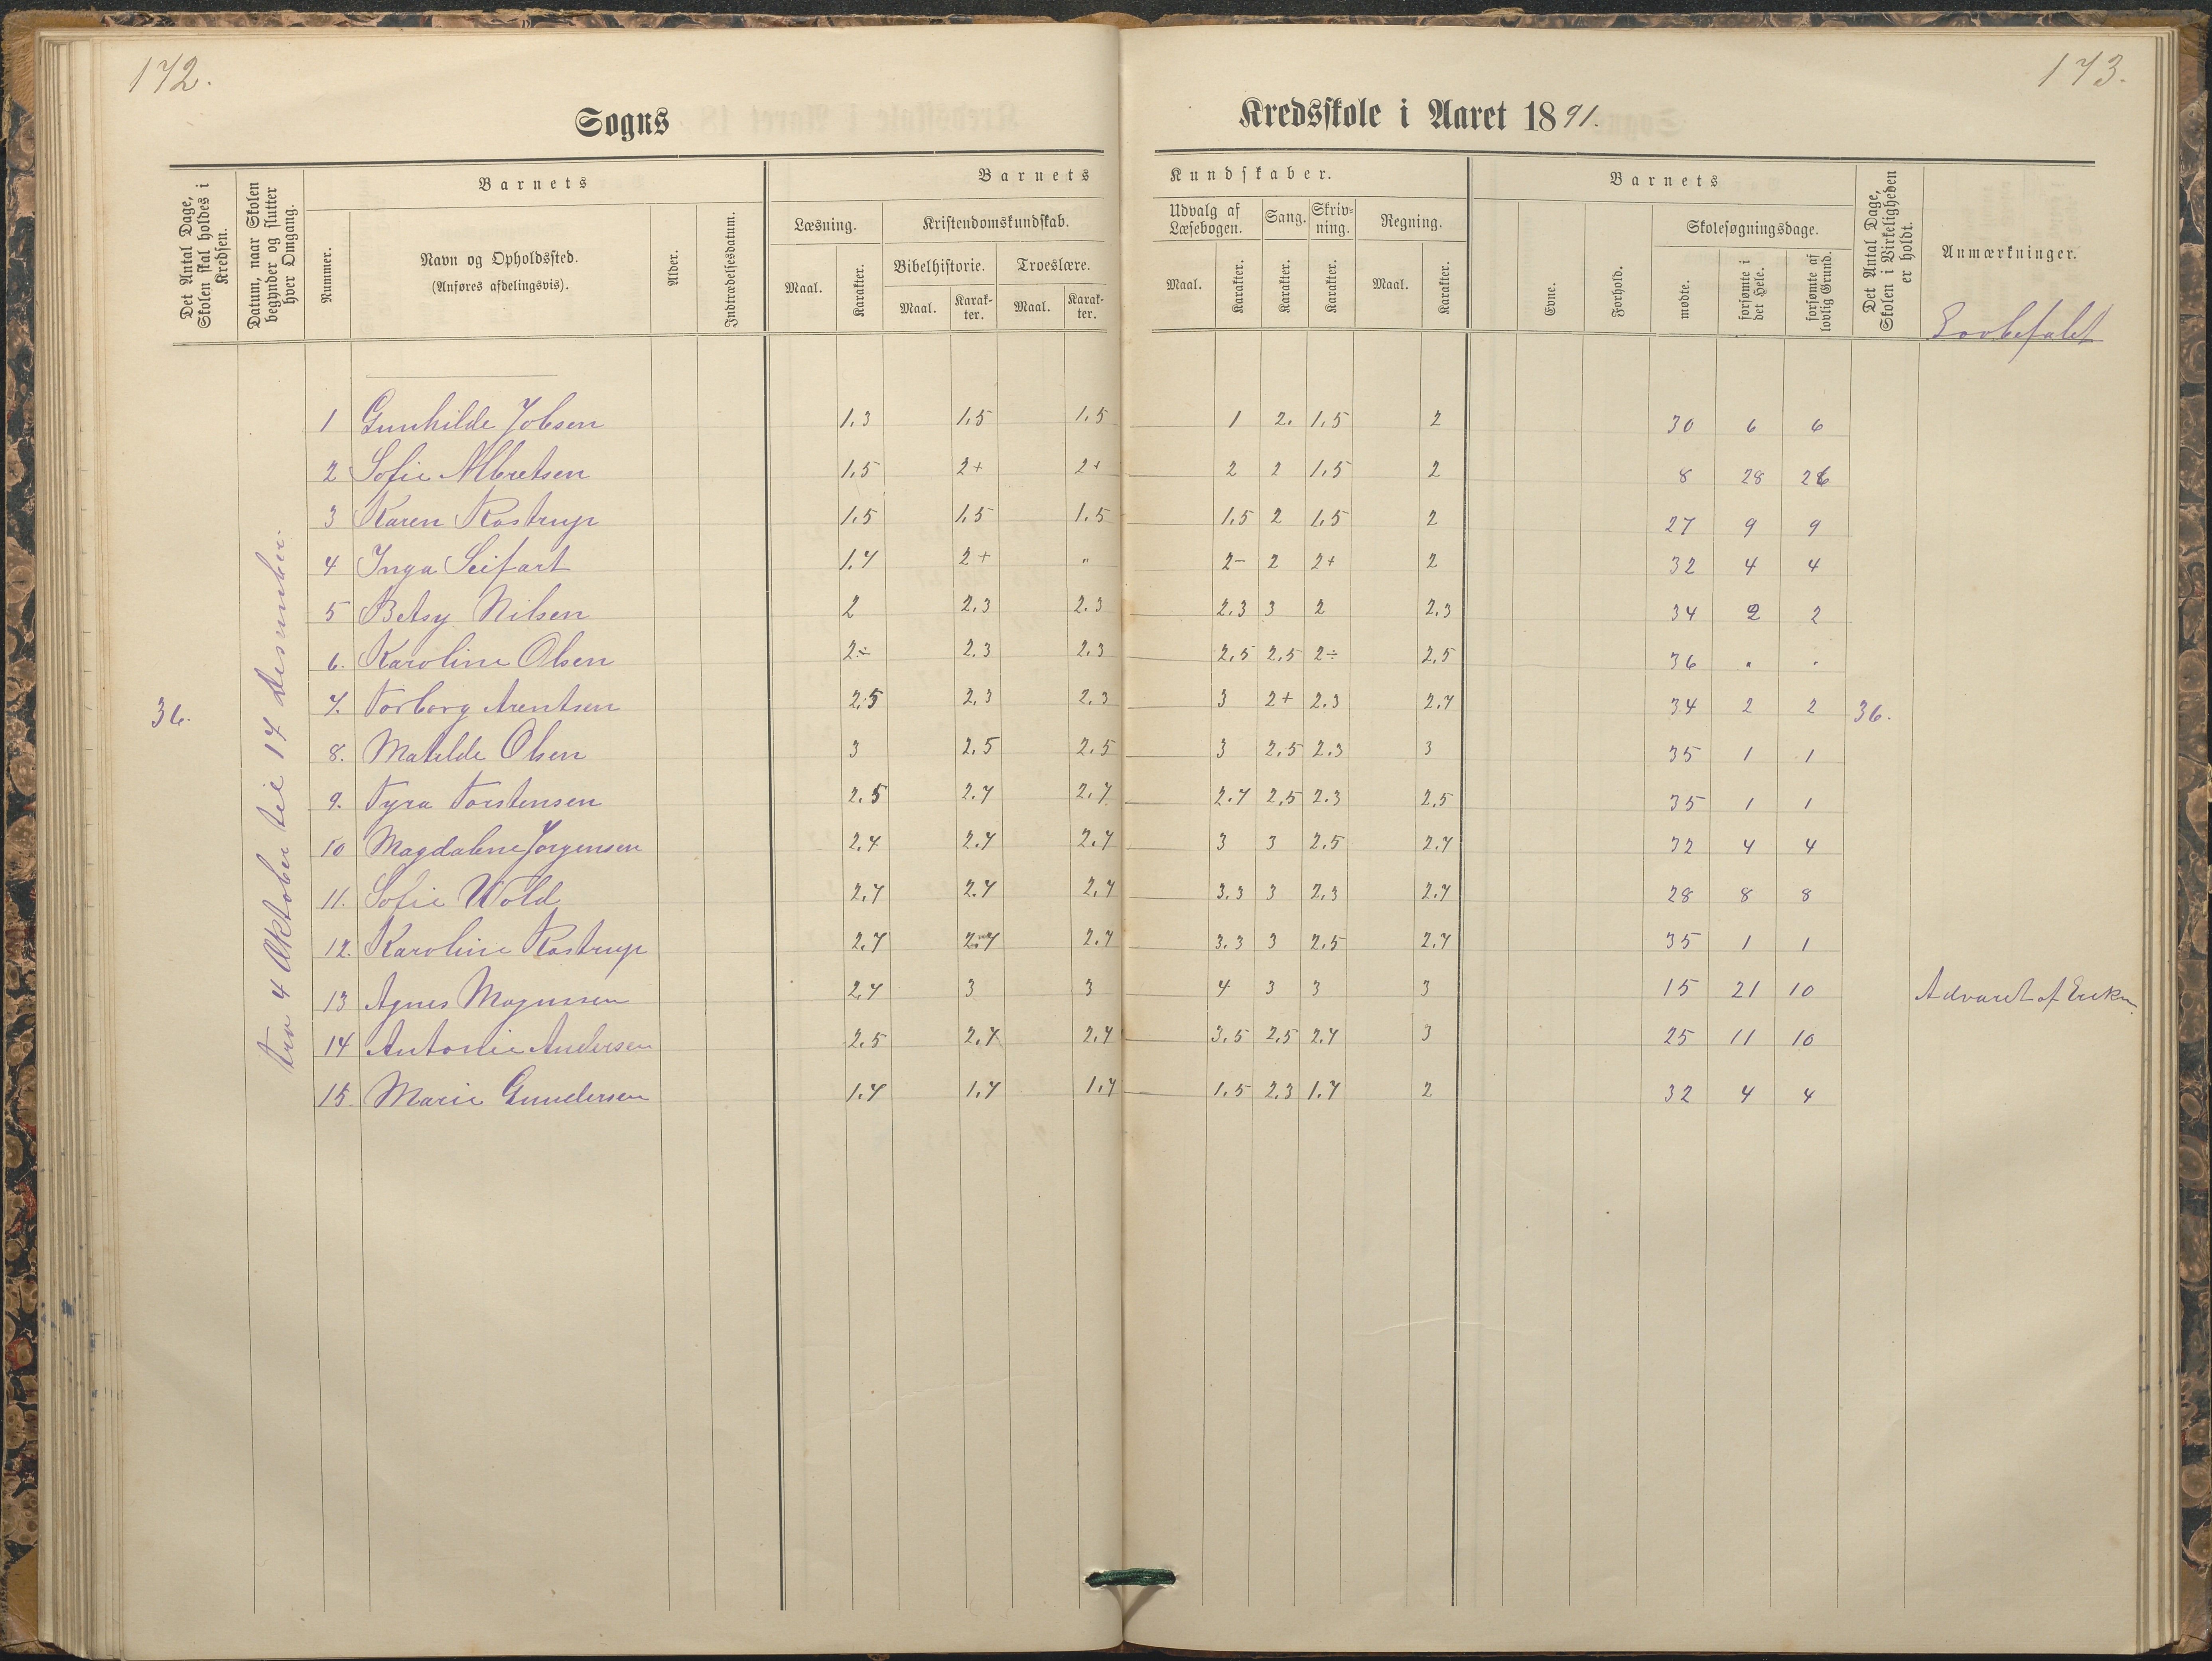 172.
173.
Sogns
Kredsskole i Aaret 1891.
Det Antal Dage, Skolen skal holdes i Kredsen.
Datum, naar Skolen begynder og slutter hver Omgang.
Barnets
Nummer.
Navn og Opholdssted.
(Anføres afdelingsvis).
Alder.
Indtrædelsesdatum.
Barnets Kundskaber.
Læsning.
Maal.
Karakter.
Kristendomskundskab.
Bibelhistorie.
Maal.
Karakter.
Troeslære.
Maal.
Karakter.
Udvalg af Læsebogen.
Maal.
Karakter.
Sang.
Karakter.
Skrivning.
Karakter.
Regning.
Maal.
Karakter.
Barnets
Evne.
Forhold.
Skolesøgningsdage.
mødte.
forsømte i det Hele.
forsømte af lovlig Grund.
Det Antal Dage, Skolen i Virkeligheden er holdt.
Anmærkninger.
Lovbefalet
36.
fra 4 Oktober til 17 Desember.
1 Gunhilde Jobsen 1.3 1.5 1.5 1 2. 1.5 2 30 6 6
2 Sofie Albretsen 1.5 2+ 2+ 2 2 1.5 2 8 28 26
3 Karen Rostrup 1.5 1.5 1.5 1.5 2 1.5 2 27 9 9
4 Inga Seifart 1.7 2+ " 2- 2 2+ 2 32 4 4
5 Betsy Nilsen 2 2.3 2.3 2.3 3 2 2.3 34 2 2
6. Karoline Olsen 2÷ 2.3 2.3 2.5 2.5 2÷ 2.5 36 . .
7. Torborg Arentsen 2.5 2.3 2.3 3 2+ 2.3 2.7 34 2 2 36.
8. Matilde Olsen 3 2.5 2.5 3 2.5 2.3 3 35 1 1
9. Tyra Torstensen 2.5 2.7 2.7 2.7 2.5 2.3 2.5 35 1 1
10 Magdalene Jorgensen 2.7 2.7 2.7 3 3 2.5 2.7 32 4 4
11. Sofie Wold 2.7 2.7 2.7 3.3 3 2.3 2.7 28 8 8
12. Karoline Rostrup 2.7 2.7 2.7 3.3 3 2.5 2.7 35 1 1
13 Agnes Magnussen 2.7 3 3 4 3 3 3 15 21 10 Advaret af
14 Antonie Andersen 2.5 2.7 2.7 3.5 2.5 2.7 3 25 11 10
15 Marie Gundersen 1.7 1.7 1.7 1.5 2.3 1.7 2 32 4 4